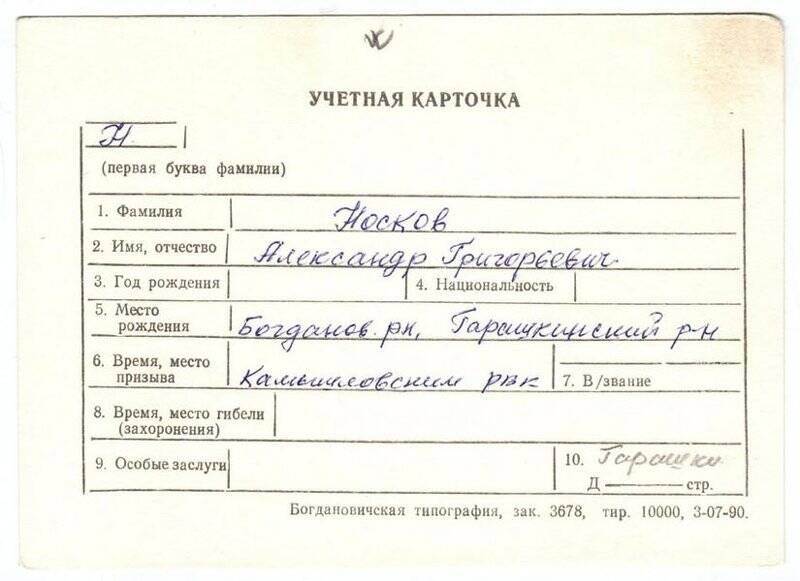 УЧЕТНАЯ КАРТОЧКА
Н.
(первая буква фамилии)
1. Фамилия Носков
2. Имя, отчество Александр Григорьевич
3. Год рождения 4. Национальность
5. Место рождения Богданов. рн, Гарашкинский р-н
6. Время, место призыва Камышловским рвк 7. В/звание
8. Время, место гибели (захоронения)
9. Особые заслуги 10. Гарашки
Д ——— стр.
Богдановичская типография, зак. 3678, тир. 10000, 3-07-90.